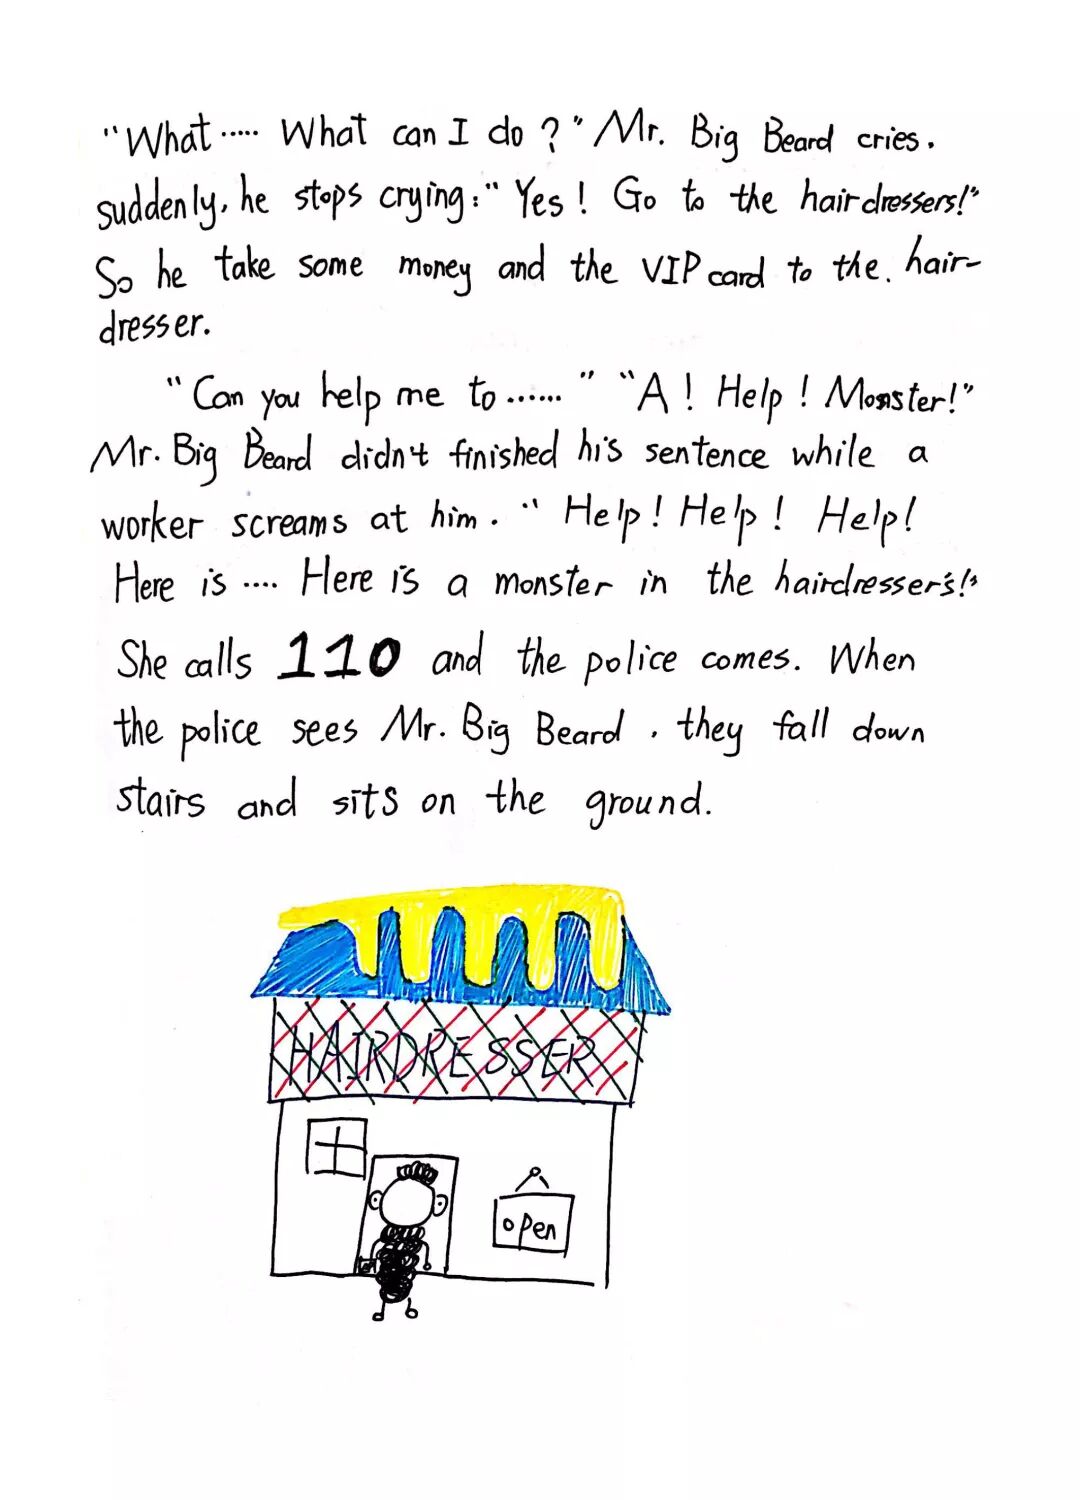 "What ..... What can I do ? " Mr. Big Beard cries.
suddenly, he stops crying : " Yes ! Go to the hairdressers!"
So he take some money and the VIP card to the. hair-
dresser.
"Can you help me to ...... " "A ! Help ! Monster!"
Mr. Big Beard didn't finished his sentence while a
worker screams at him. " Help ! Help ! Help !
Here is .... Here is a monster in the hairdresser's!"
She calls 110 and the police comes. When
the police sees Mr. Big Beard , they fall down
stairs and sits on the ground.
HAIRDRESSER
open